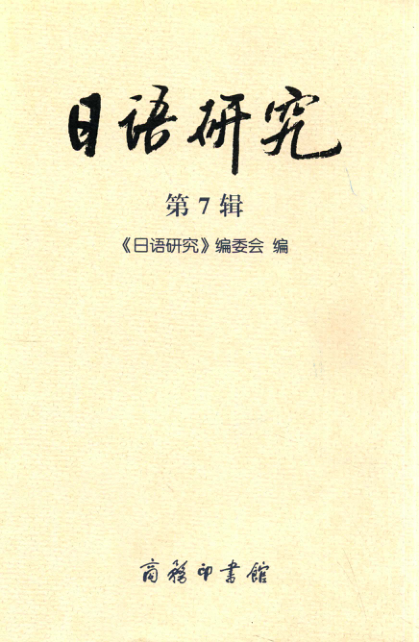 日语研究
第7辑
《日语研究》编委会 编
商務印書館